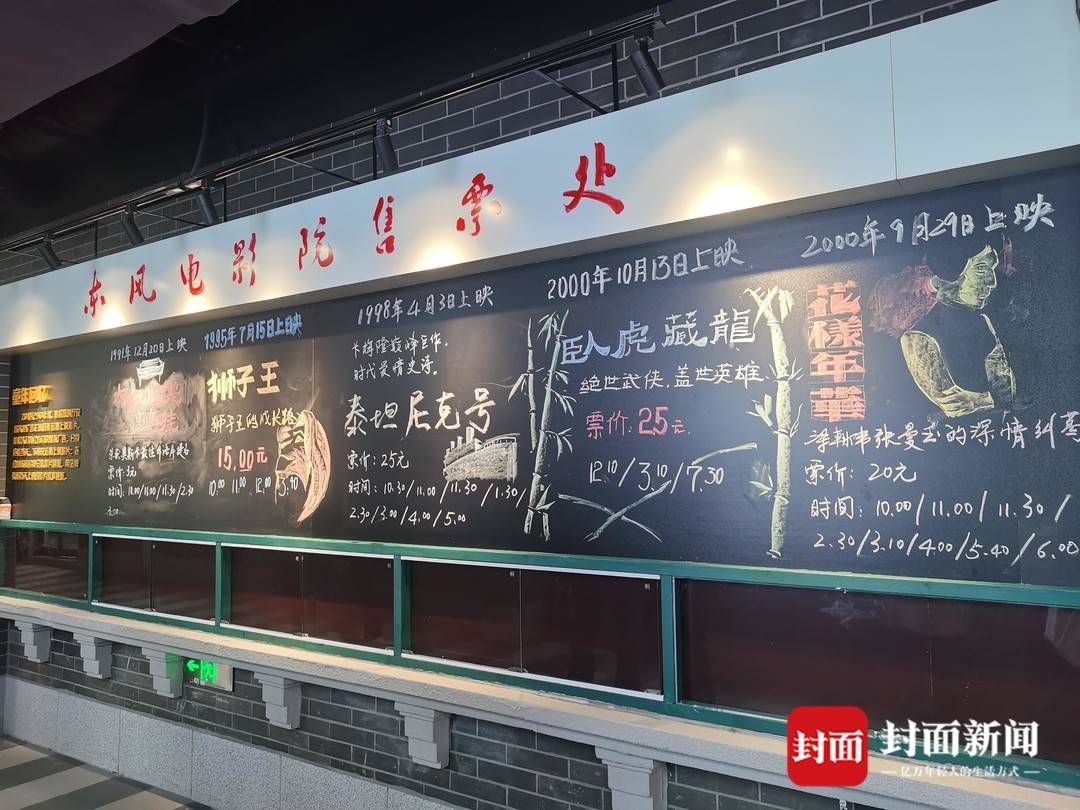 东风电影院售票处
童年回忆
1991年12月20日上映
票价:3元
时间:11.00/11.00/11.30/2.30
1995年7月15日上映
狮子王
狮子王的成长路
15.00元
10.00 11.00 12.00 3.40
1998年4月3日上映
卡梅隆巅峰巨作.
时代爱情史诗.
泰坦尼克号
票价:25元
时间:10.30/11.00/11.30/1.30/
2.30/3.00/4.00/5.00
2000年10月13日上映
卧虎藏龍
绝世武侠.盖世英雄
票价:25元
12.10/3.10/7.30
2000年9月29日上映
花樣年華
梁朝伟张曼玉的深情纠葛
票价:20元
时间:10.00/11.00/11.30/
2.30/3.10/4.00/5.40/6.00
封面
封面新闻
亿万年轻人的生活方式